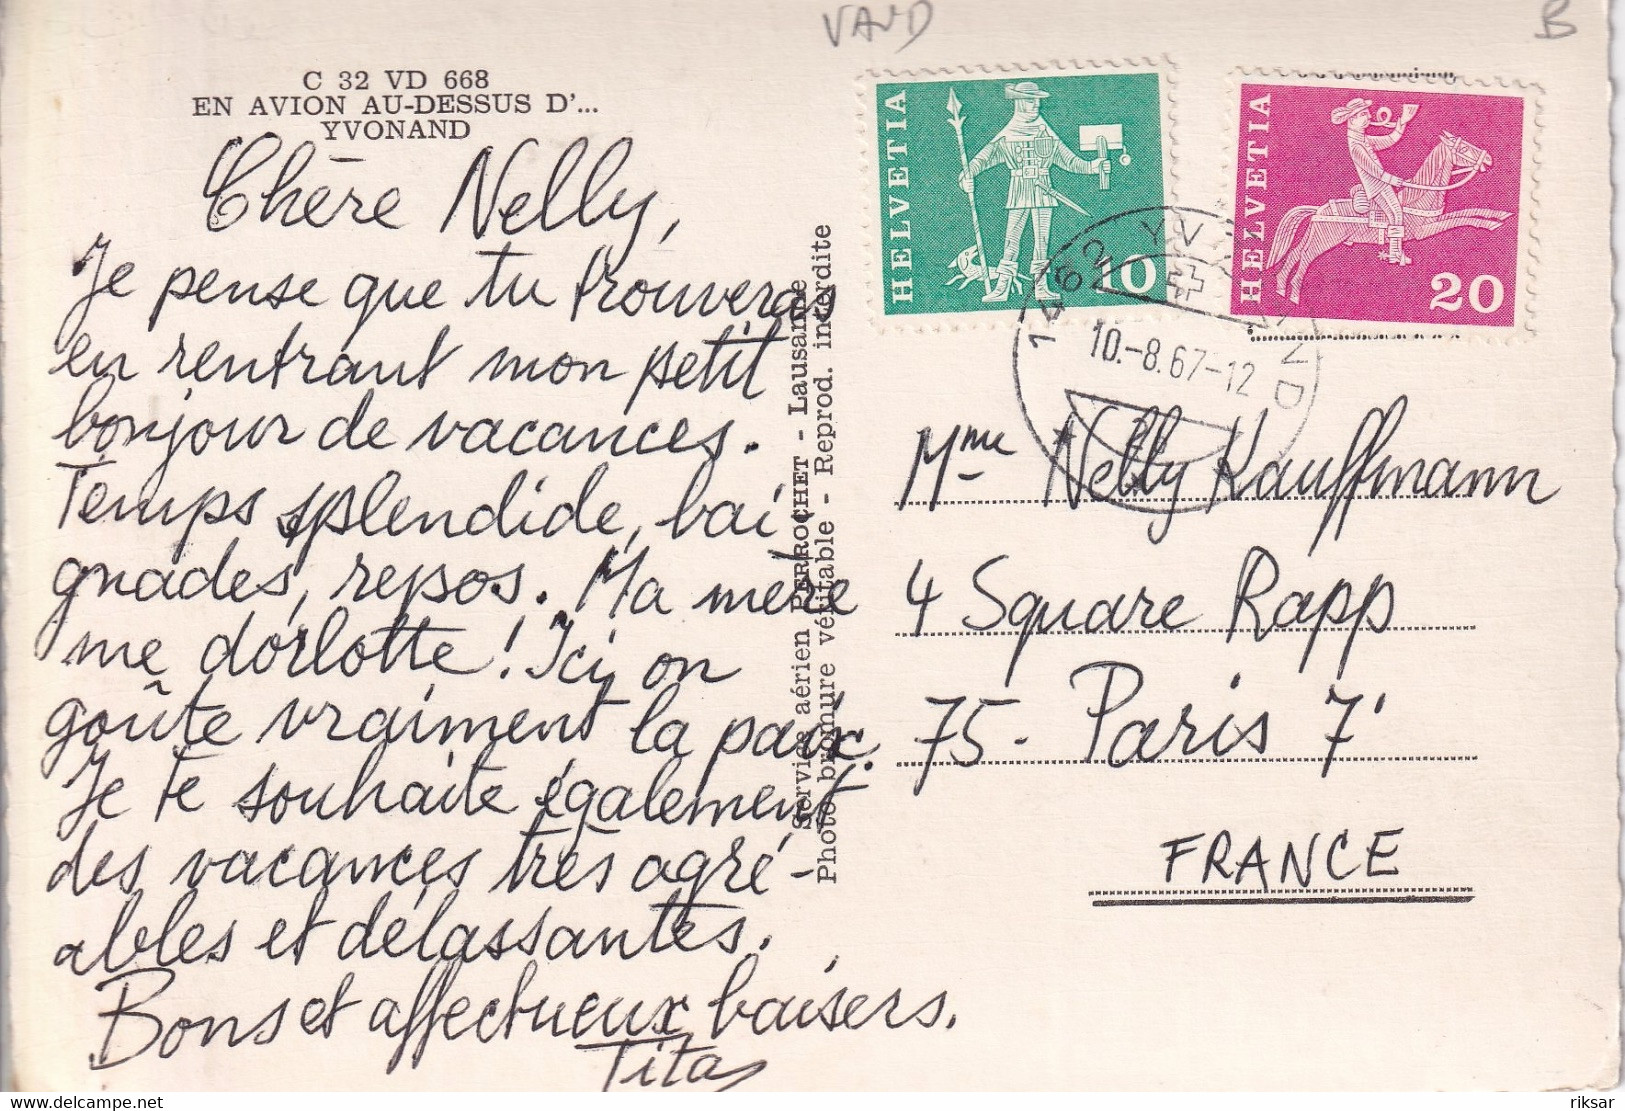 VAUD
B
C 32 VD 668
EN AVION AU-DESSUS D'...
YVONAND
Chère Nelly,
Je pense que tu trouveras
en rentrant mon petit
bonjour de vacances.
Temps splendide, bai-
gnades, repos. Ma mère
me dorlotte! Ici on
goûte vraiment la paix.
Je te souhaite également
des vacances très agré-
ables et délassantes.
Bons et affectueux baisers.
Tita
Service aérien PERROCHET - Lausanne
Photo bromure véritable - Reprod. interdite
HELVETIA
10
HELVETIA
20
1462 YVONAND
10.-8.67-12
Mme Nelly Kauffmann
4 Square Rapp
75- Paris 7'
FRANCE
delcampe.net
riksar